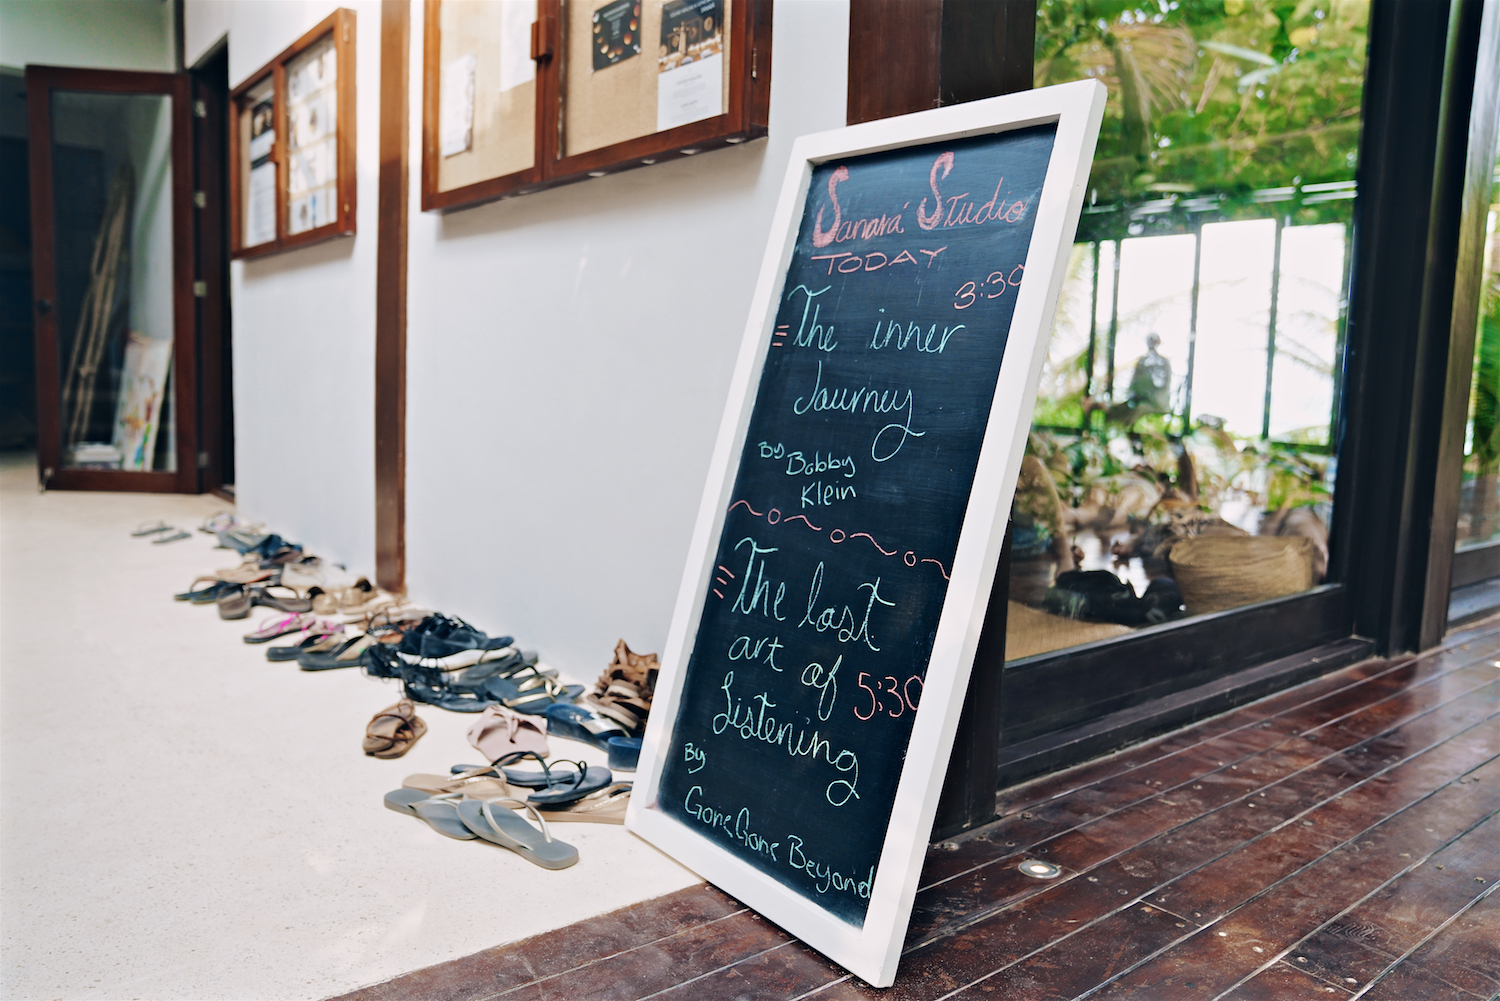 Sanará Studio
TODAY
3:30
The inner
Journey
By Bobby
Klein
The lost
art of 5:30
Listening
By
Gone Gone Beyond